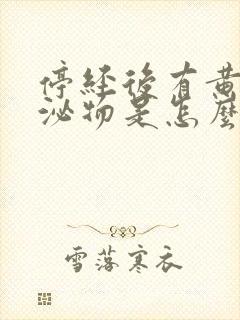 停經後有黃
泌物是怎麼
雪落寒衣